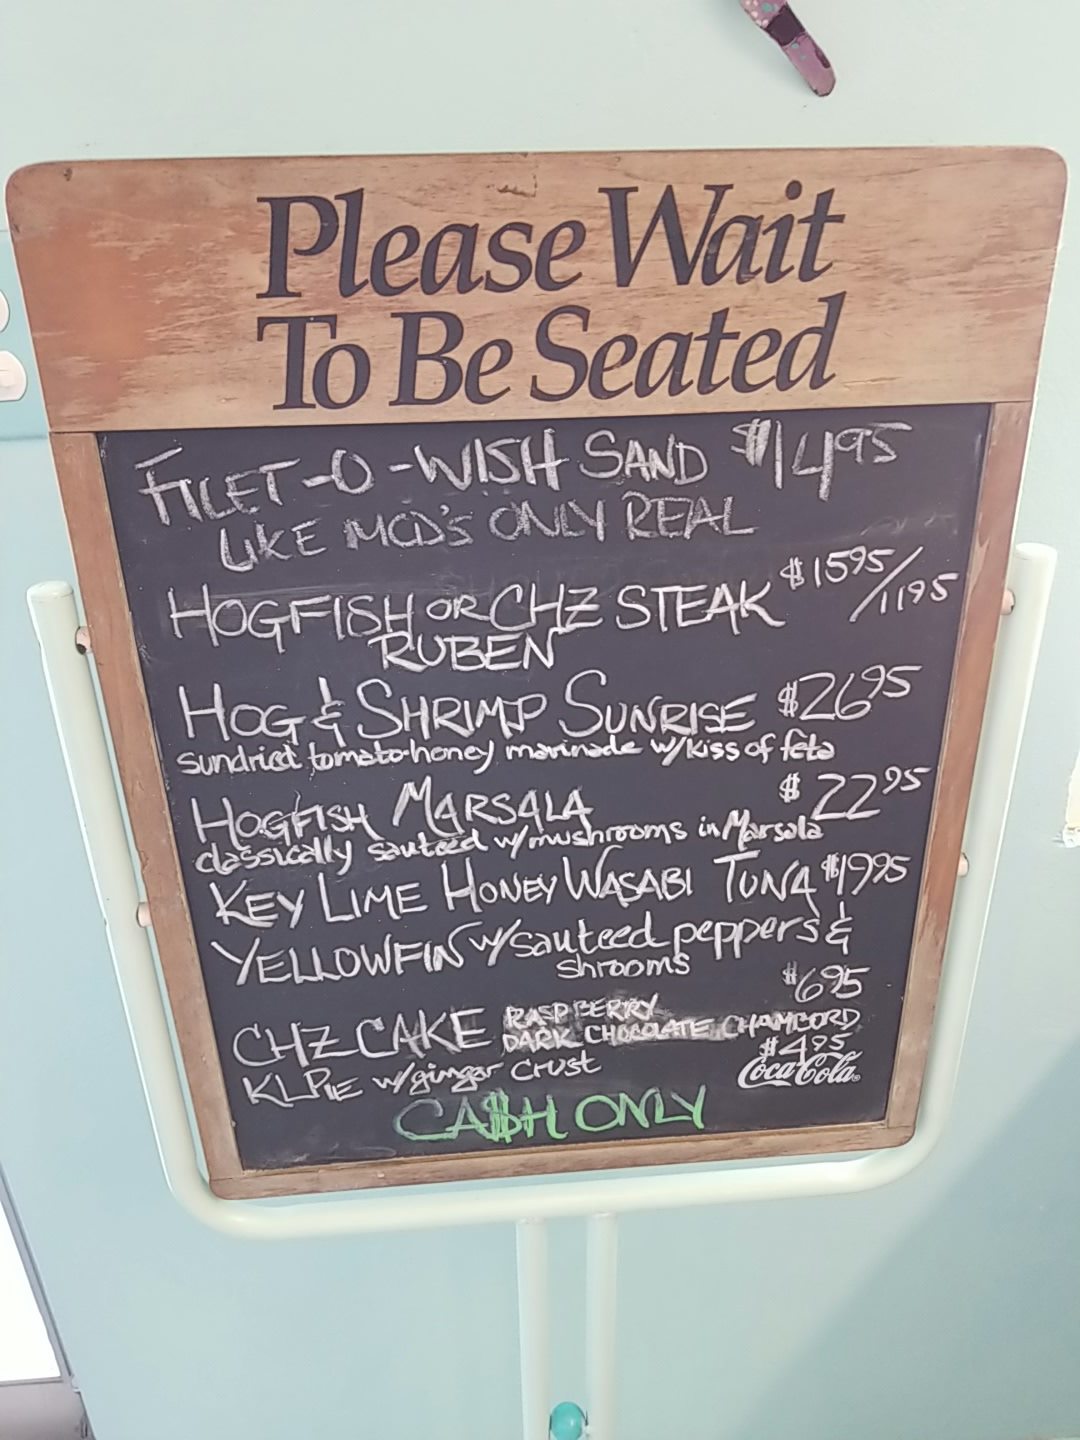 Please Wait
To Be Seated
FILET-O-WISH SAND $14.95
LIKE MCD'S ONLY REAL
HOGFISH OR CHZ STEAK $15.95/11.95
RUBEN
HOG & SHRIMP SUNRISE $26.95
sundried tomato-honey marinade w/kiss of feta
HOGFISH MARSALA $22.95
classically sauteed w/mushrooms in Marsala
KEY LIME HONEY WASABI TUNA $19.95
YELLOWFIN w/sauteed peppers &
shrooms
$6.95
CHZ CAKE RASPBERRY
DARK CHOCOLATE CHAMBORD
$4.95
KL PIE w/ginger crust
Coca-Cola®
CA$H ONLY